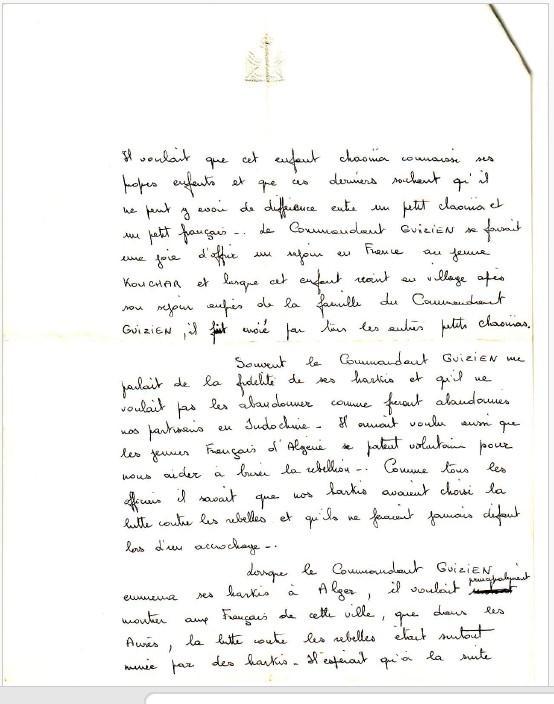 Il voulait que cet enfant chaouïa connaisse ses
propes enfants et que ces derniers sachent qu'il
ne peut y avoir de différence entre un petit chaouïa et
un petit français -. Le Commandant GUIZIEN se faisait
une joie d'offrir un séjour en France au jeune
KOUCHAR et lorsque cet enfant revint au village après
son séjour auprès de la famille du Commandant
GUIZIEN, il fut envié par tous les autres petits chaouïas.
Souvent le Commandant GUIZIEN me
parlait de la fidélité de ses harkis et qu'il ne
voulait pas les abandonner comme furent abandonnés
nos partisans en Indochine - Il aurait voulu aussi que
les jeunes Français d'Algérie se portent volontaires pour
nous aider à briser la rébellion -. Comme tous les
officiers il savait que nos harkis avaient choisi la
lutte contre les rebelles et qu'ils ne feraient jamais défaut
lors d'un accrochage -.
Lorsque le Commandant GUIZIEN
emmena ses harkis à Alger, il voulait principalement
montrer aux Français de cette ville, que dans les
Aurès, la lutte contre les rebelles était surtout
menée par des harkis - Il espérait qu'à la suite